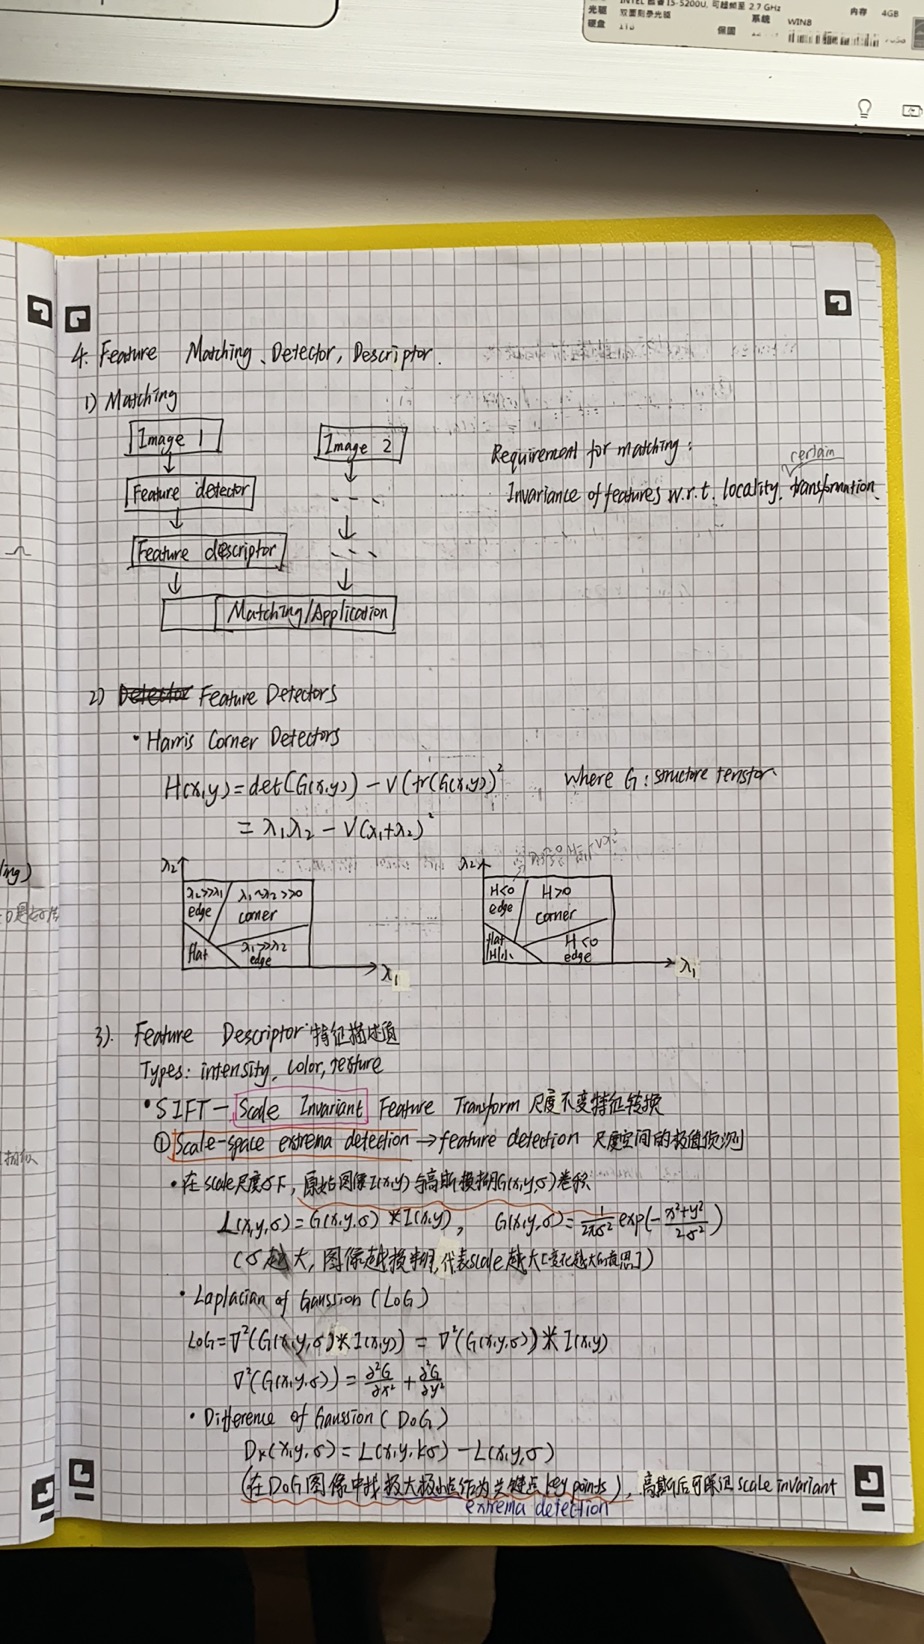 INTEL 酷睿 i5-5200U, 可超频至 2.7 GHz
光驱 双面刻录光驱 系统 WIN8 内存 4GB
硬盘 1TB 保固
4. Feature Matching、Detector, Descriptor.
1) Matching
Image 1 Image 2
Requirement for matching:
certain
Invariance of features w.r.t. locality, transformation.
Feature detector ---
Feature descriptor ---
Matching/Application
2) Feature Detectors
• Harris Corner Detectors
H(x,y) = det(G(x,y)) - V(tr(G(x,y))² where G: structure tenstor.
= λ₁λ₂ - V(λ₁+λ₂)²
λ₂ λ₂>>λ₁ edge λ₁~λ₂>>0 corner flat λ₁>>λ₂ edge λ₁
λ₂ H<0 edge H>0 corner flat |H|小 H<0 edge λ₁
ling)
3). Feature Descriptor 特征描述值
Types: intensity, color, texture
• SIFT - Scale Invariant Feature Transform 尺度不变特征转换
① Scale-space extrema detection → feature detection 尺度空间的极值侦测
• 在scale尺度σ下, 原始图像I(x,y)与高斯模糊G(x,y,σ)卷积
L(x,y,σ) = G(x,y,σ) * I(x,y), G(x,y,σ) = 1/2πσ² exp(- x²+y²/2σ²)
(σ越大, 图像越模糊, 代表scale越大[变化越大的意思])
• Laplacian of Gaussion (LoG)
LoG = ∇²(G(x,y,σ) * I(x,y)) = ∇²(G(x,y,σ)) * I(x,y)
∇²(G(x,y,σ)) = ∂²G/∂x² + ∂²G/∂y²
• Difference of Gaussion (DoG)
Dₖ(x,y,σ) = L(x,y,kσ) - L(x,y,σ)
(在DoG图像中找极大极小点作为关键点key points), 高斯后可保证scale invariant
extrema detection